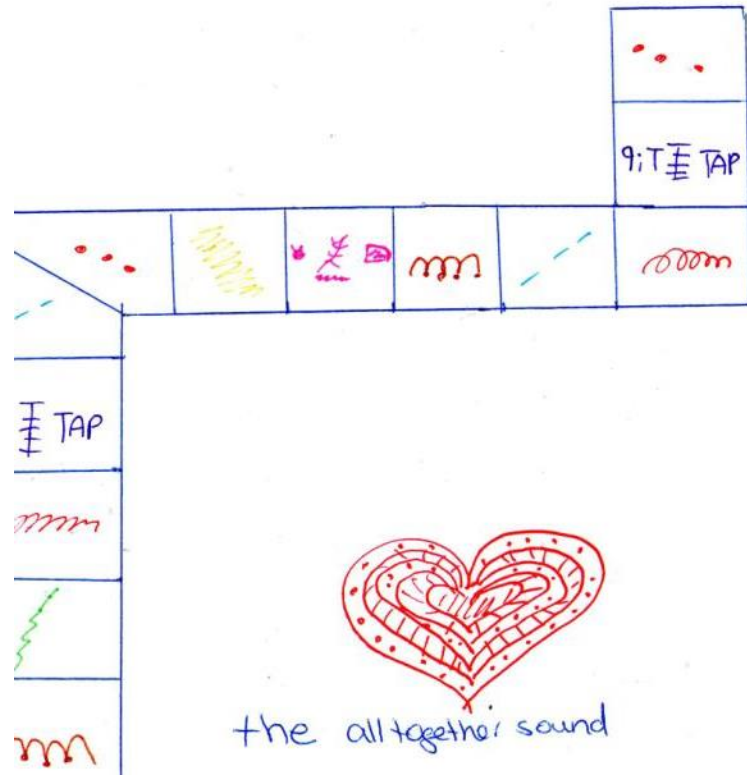 TAP
TAP
the alltogether sound